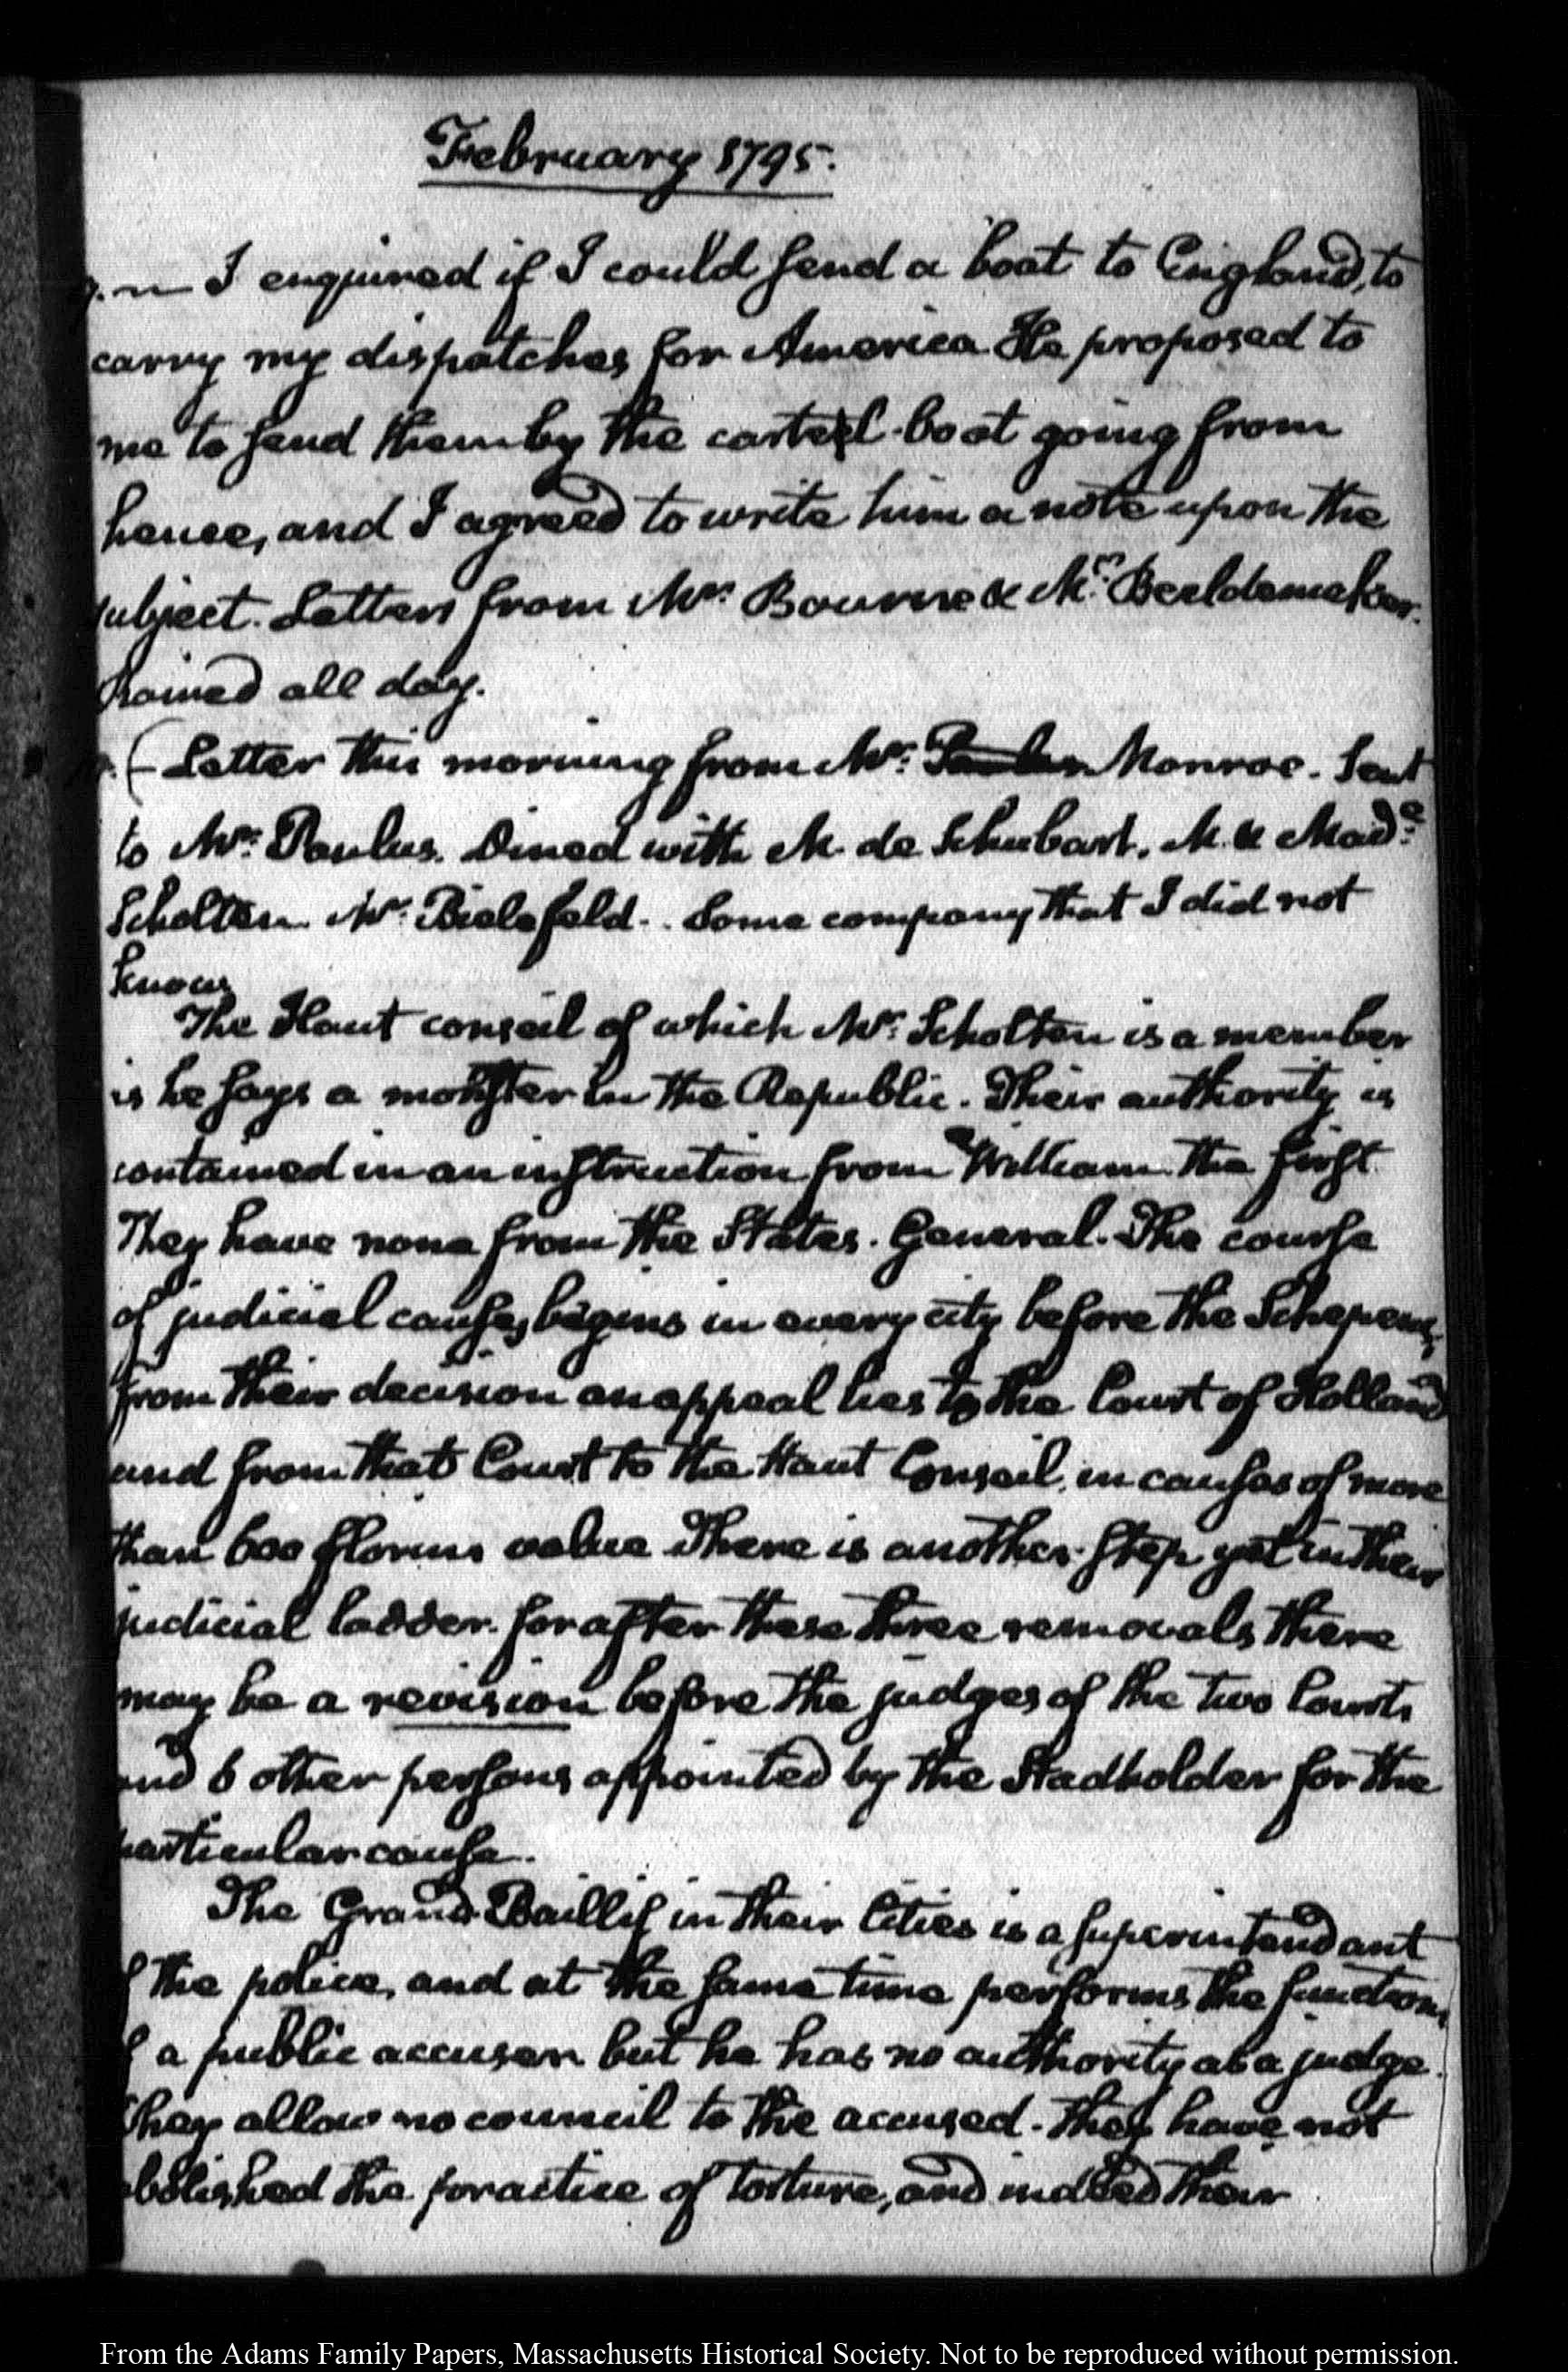 February 1795.
I enquired if I could send a boat to England, to
carry my dispatches for America. He proposed to
me to send them by the cartel-boat going from
hence, and I agreed to write him a note upon the
subject. Letters from Mr. Bourne & Mr. Beeldemaker.
Rained all day.
Letter this morning from Mr. Paulus Monroe. Sent
to Mr. Paulus. Dined with M. de Schubart. M. & Made.
Scholten. Mr. Bielefeld. Some company that I did not
know
The Haut conseil of which Mr. Scholten is a member
is he says a monster in the Republic. Their authority is
contained in an instruction from William the first
They have none from the States. General. The course
of judicial causes begins in every city before the Schepens,
from their decision an appeal lies to the Court of Holland
and from that Court to the Haut Conseil, in causes of more
than 600 florins value There is another step yet in their
judicial ladder. for after these three removals there
may be a revision before the judges of the two Courts
and 6 other persons appointed by the Stadholder for the
particular cause.
The Grand Baillif in their Cities is a superintendant
of the police, and at the same time performs the functions
of a public accuser but he has no authority as a judge.
They allow no council to the accused. they have not
abolished the practice of torture, and indeed their
From the Adams Family Papers, Massachusetts Historical Society. Not to be reproduced without permission.